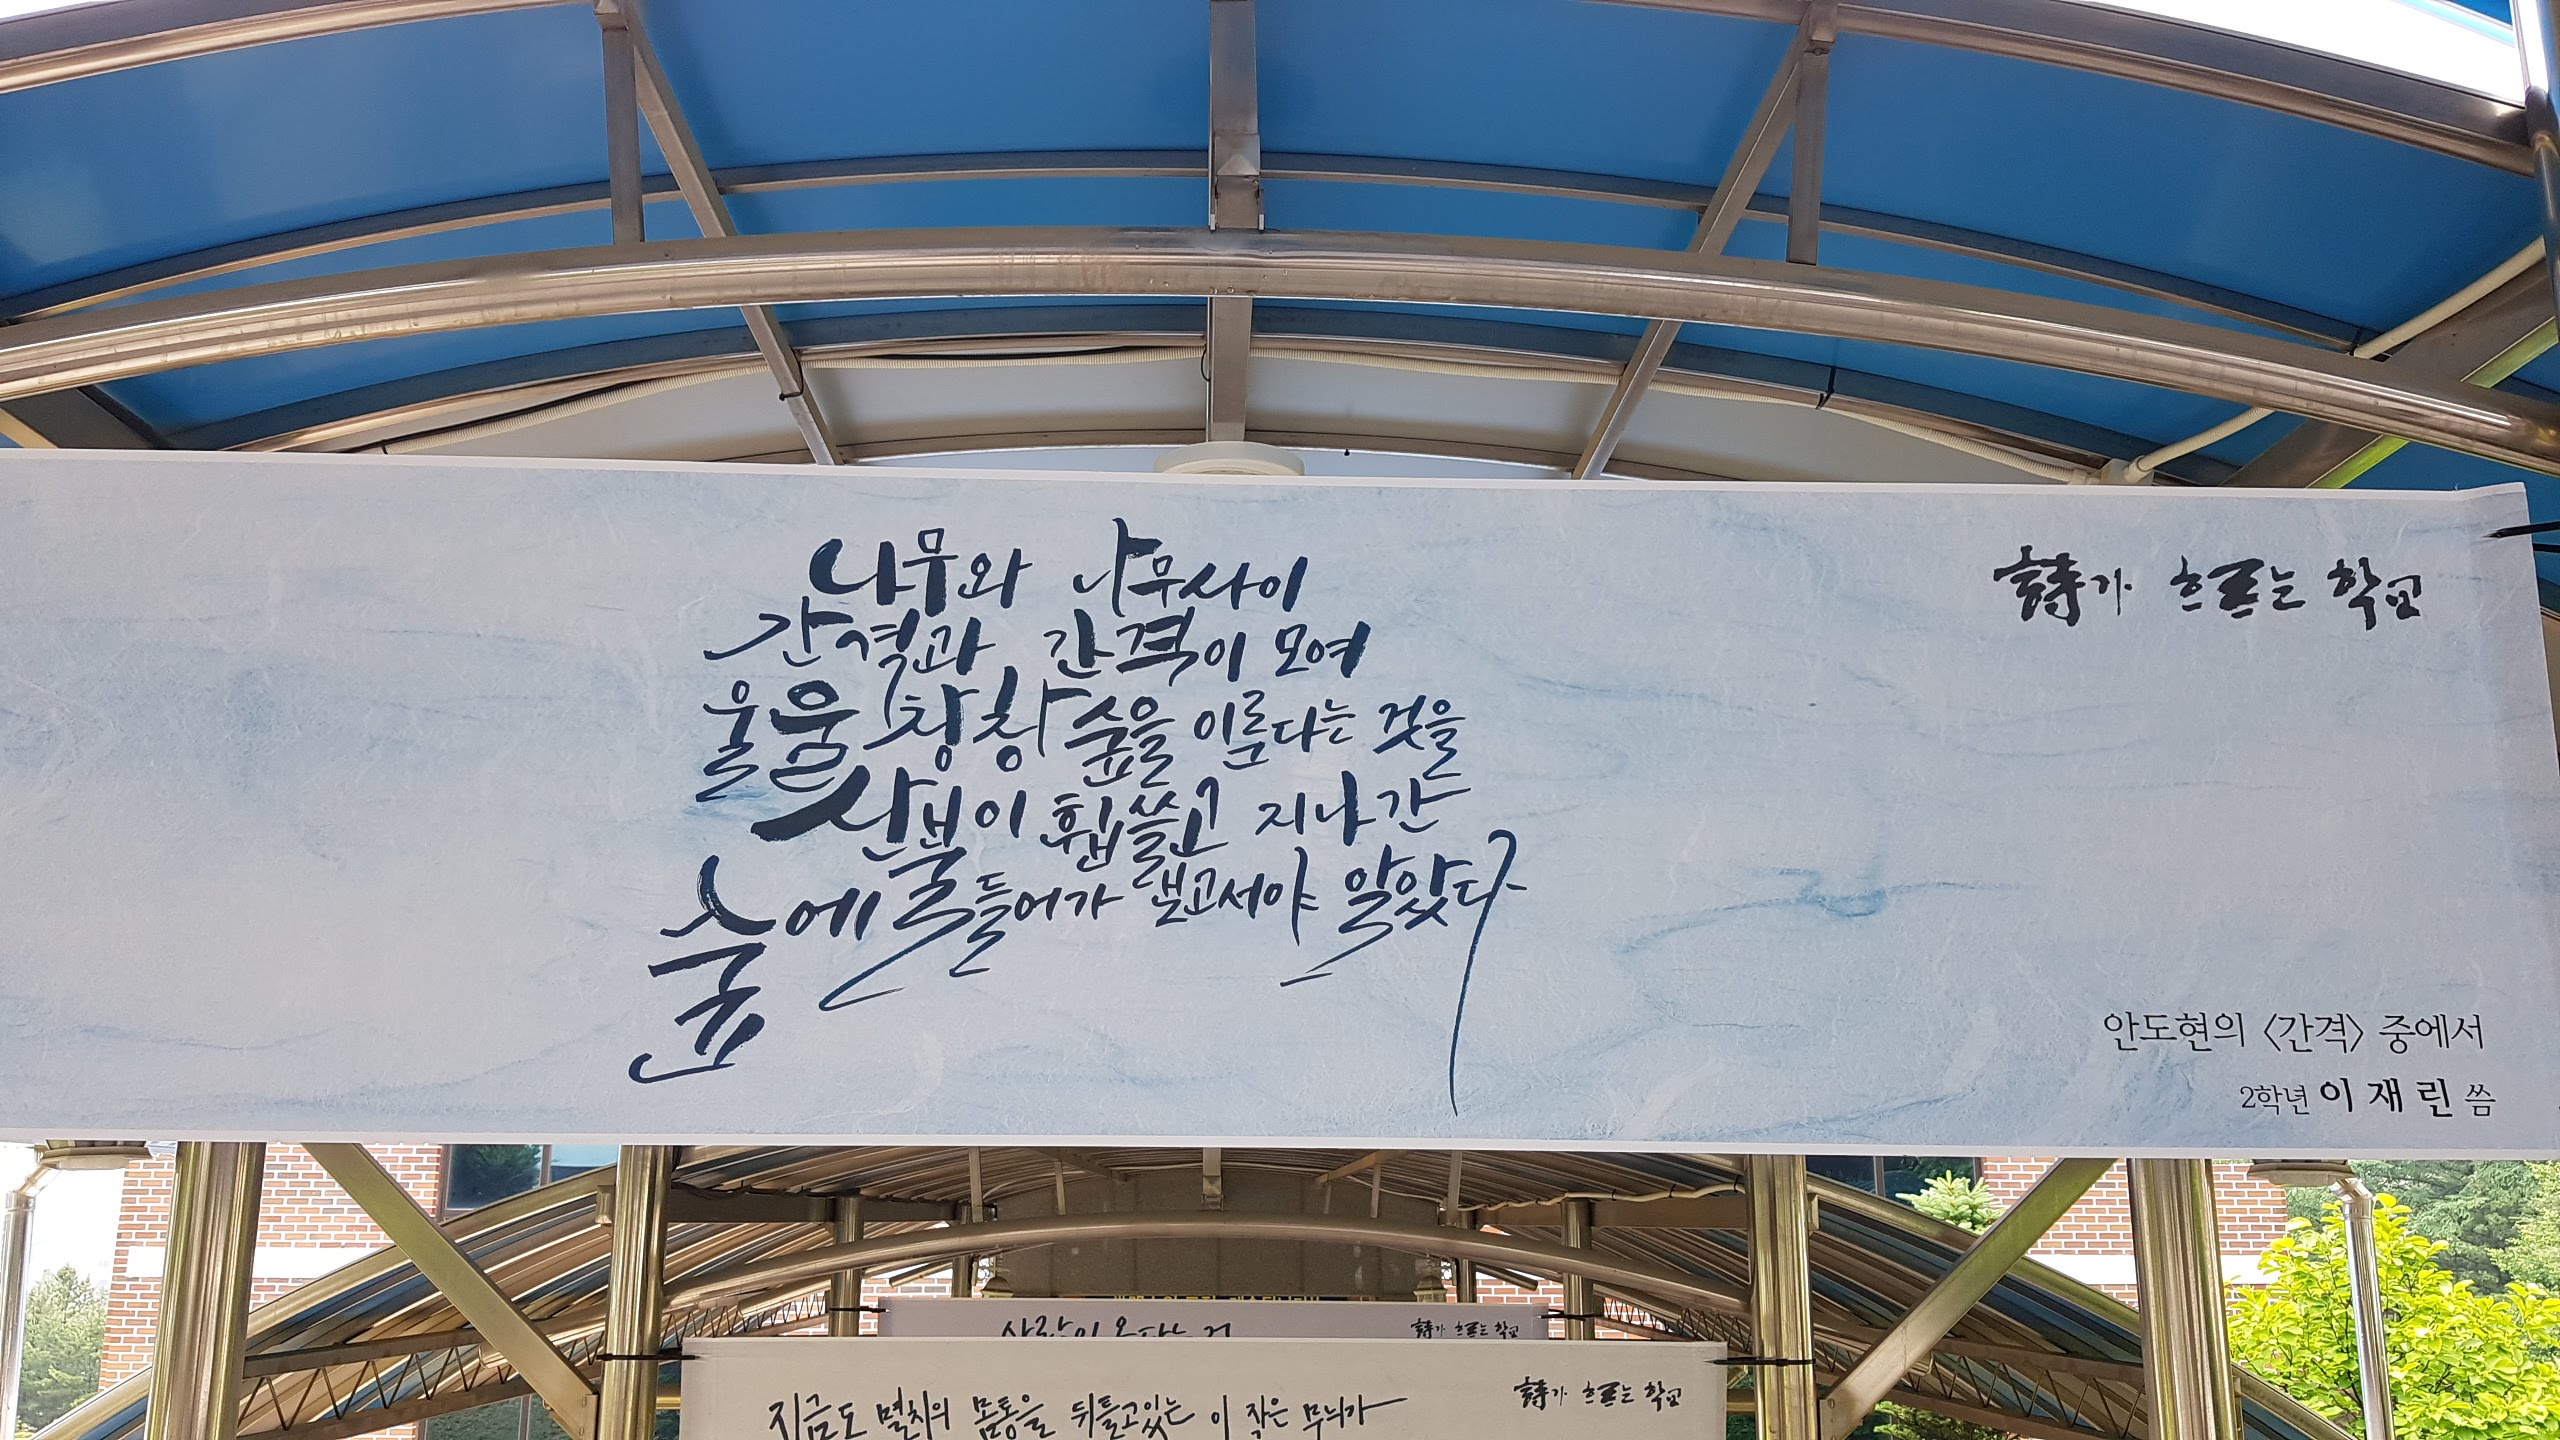 나무와 나무사이
간격과 간격이 모여
울울창창 숲을 이룬다는 것을
산불이 휩쓸고 지나간
숲에 들어가 보고서야 알았다
詩가 흐르는 학교
안도현의 〈간격〉 중에서
2학년 이재린 씀
詩가 흐르는 학교
지금도 멸치의 몸통을 뒤틀고있는 이 작은 무늬가
詩가 흐르는 학교